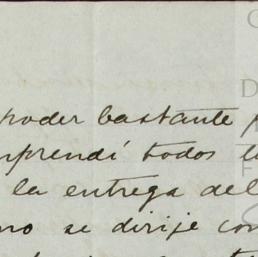 poder bastante p
mprendí todos l
la entrega del
no se dirije con